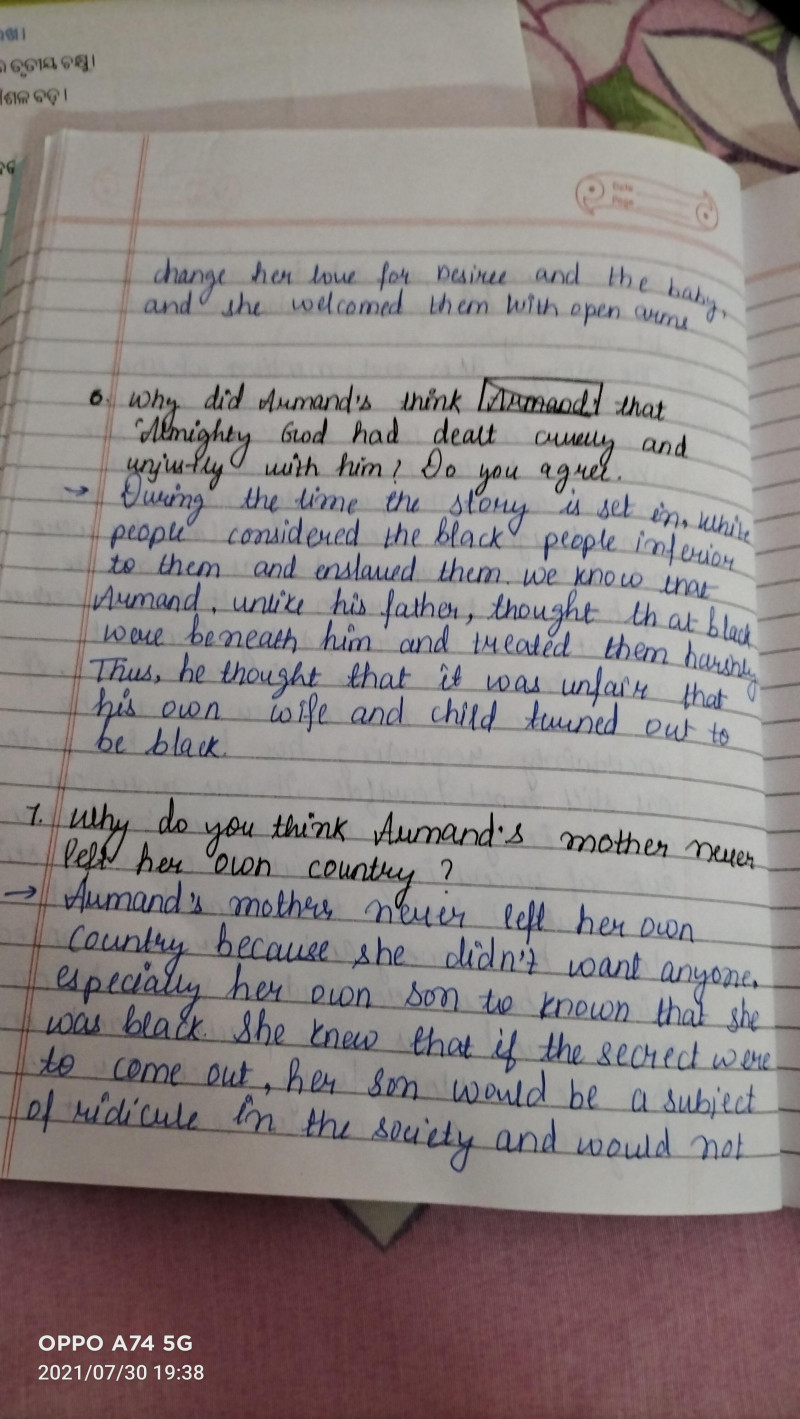 ତୃତୀୟ ଚକ୍ଷୁ।
ବଡ଼।
Date
Page
change her love for Desiree and the baby,
and she welcomed them with open arms
6. why did Armand's think Armand that
Almighty God had dealt cruelly and
unjustly with him? Do you agree.
→ During the time the story is set in, white
people considered the black people inferior
to them and enslaved them. we know that
Armand, unlike his father, thought that black
were beneath him and treated them harshly
Thus, he thought that it was unfair that
his own wife and child turned out to
be black.
7. Why do you think Armand's mother never
left her own country?
→ Armand's mothers never left her own
country because she didn't want anyone,
especially her own son to known that she
was black. She knew that if the secrect were
to come out, her son would be a subject
of ridicule in the society and would not
OPPO A74 5G
2021/07/30 19:38